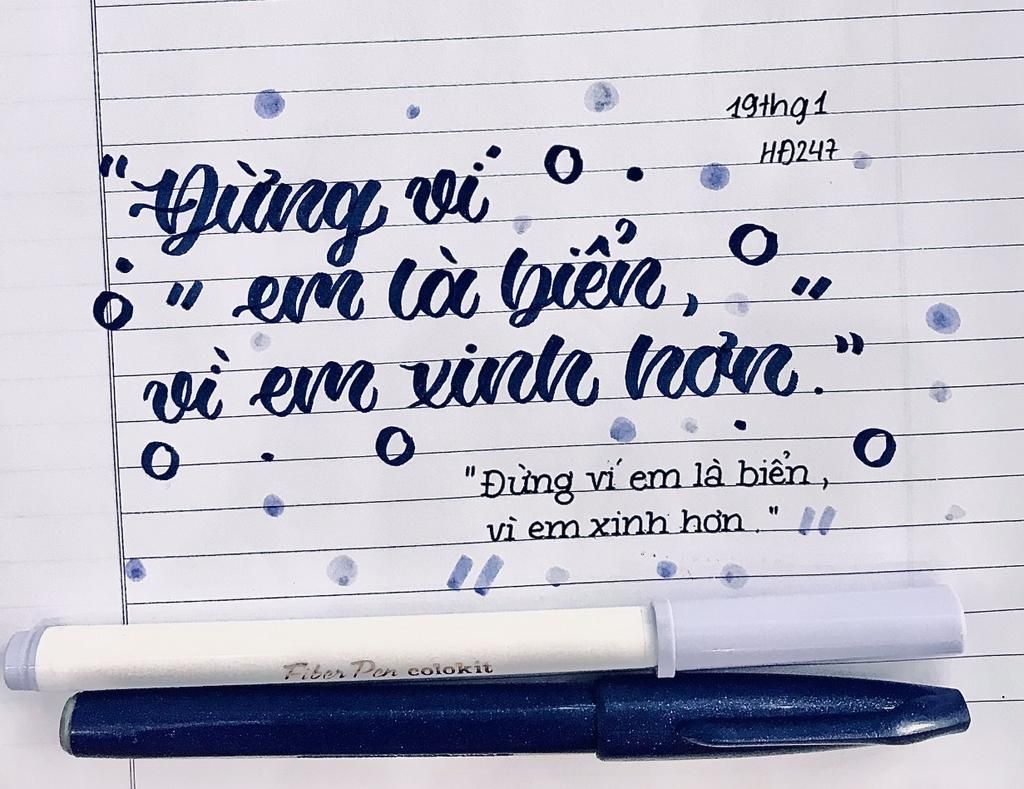 19thg1
HĐ247
"Đừng ví
em là biển,
vì em xinh hơn."
"Đừng ví em là biển,
vì em xinh hơn."
Fiber Pen colokit